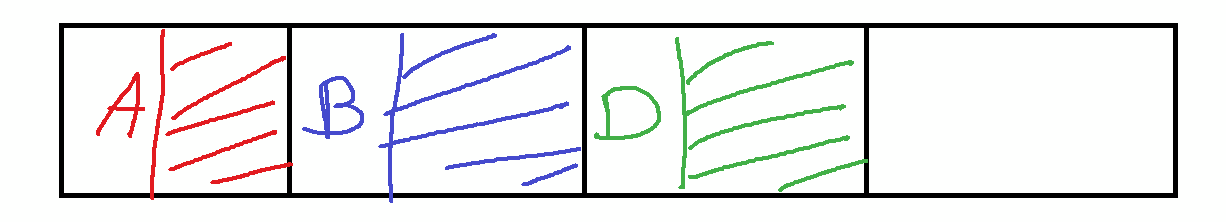 A B D